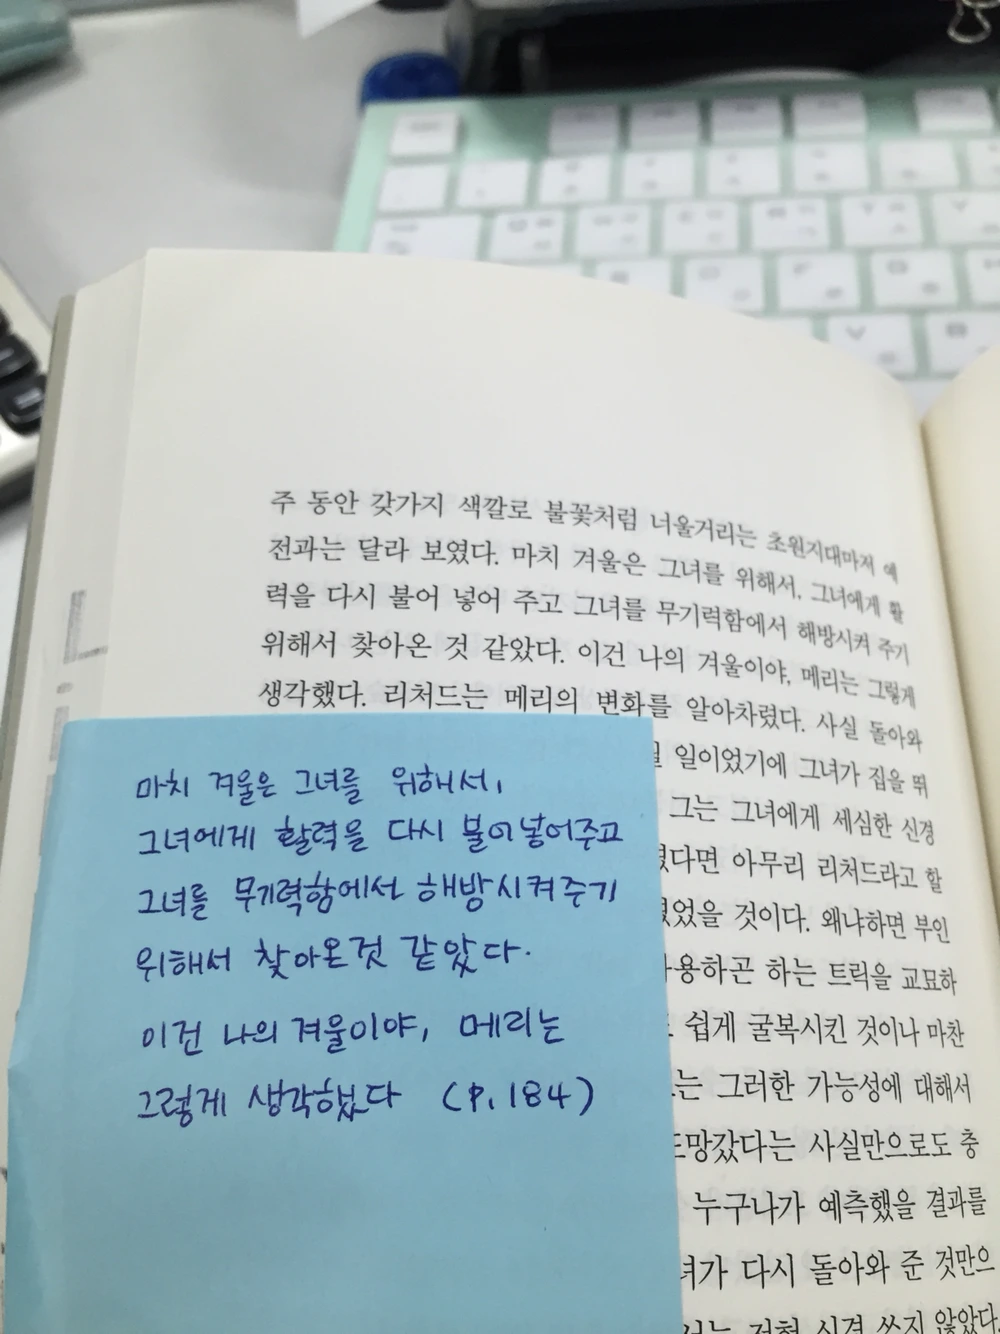 주 동안 갖가지 색깔로 불꽃처럼 너울거리는 초원지대마저 예
전과는 달라 보였다. 마치 겨울은 그녀를 위해서, 그녀에게 활
력을 다시 불어 넣어 주고 그녀를 무기력함에서 해방시켜 주기
위해서 찾아온 것 같았다. 이건 나의 겨울이야, 메리는 그렇게
생각했다. 리처드는 메리의 변화를 알아차렸다. 사실 돌아와
일이었기에 그녀가 집을 뛰
그는 그녀에게 세심한 신경
아무리 리처드라고 할
것이다. 왜냐하면 부인
하는 트릭을 교묘하
쉽게 굴복시킨 것이나 마찬
그러한 가능성에 대해서
사실만으로도 충
누구나가 예측했을 결과를
다시 돌아와 준 것만으
전혀 신경 쓰지 않았다.
마치 겨울은 그녀를 위해서,
그녀에게 활력을 다시 불어넣어주고
그녀를 무기력함에서 해방시켜주기
위해서 찾아온것 같았다.
이건 나의 겨울이야, 메리는
그렇게 생각했다 (P.184)